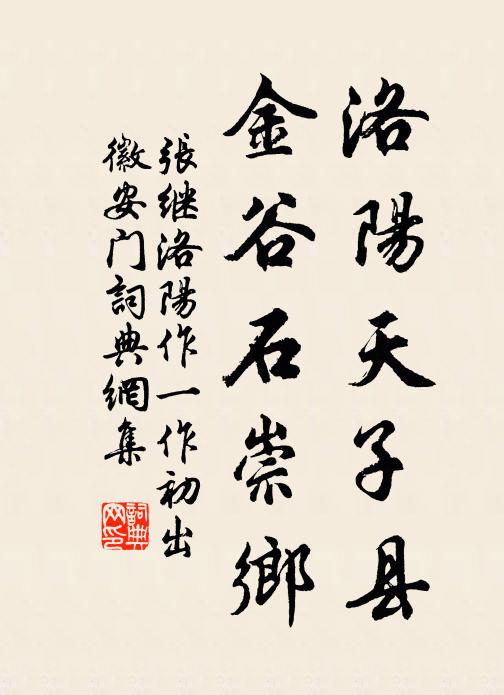 洛陽天子县
金谷石崇鄉
張继洛陽作一作初出
徽安门詞典網集
詞典网印